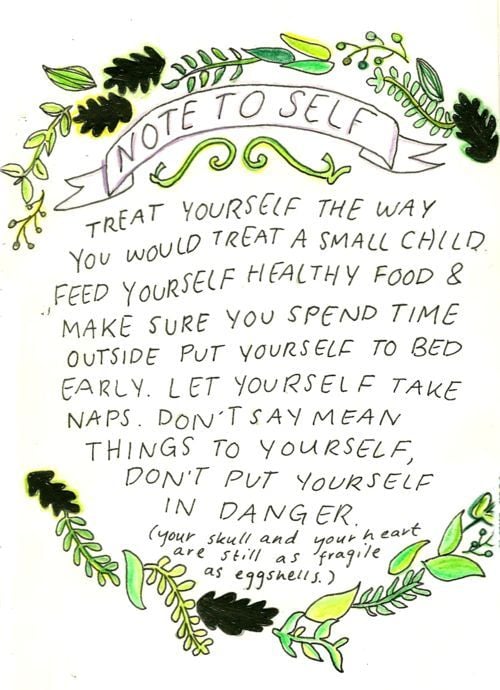 NOTE TO SELF
TREAT YOURSELF THE WAY
YOU WOULD TREAT A SMALL CHILD.
FEED YOURSELF HEALTHY FOOD &
MAKE SURE YOU SPEND TIME
OUTSIDE PUT YOURSELF TO BED
EARLY. LET YOURSELF TAKE
NAPS. DON'T SAY MEAN
THINGS TO YOURSELF,
DON'T PUT YOURSELF
IN DANGER.
(your skull and your heart
are still as fragile
as eggshells.)